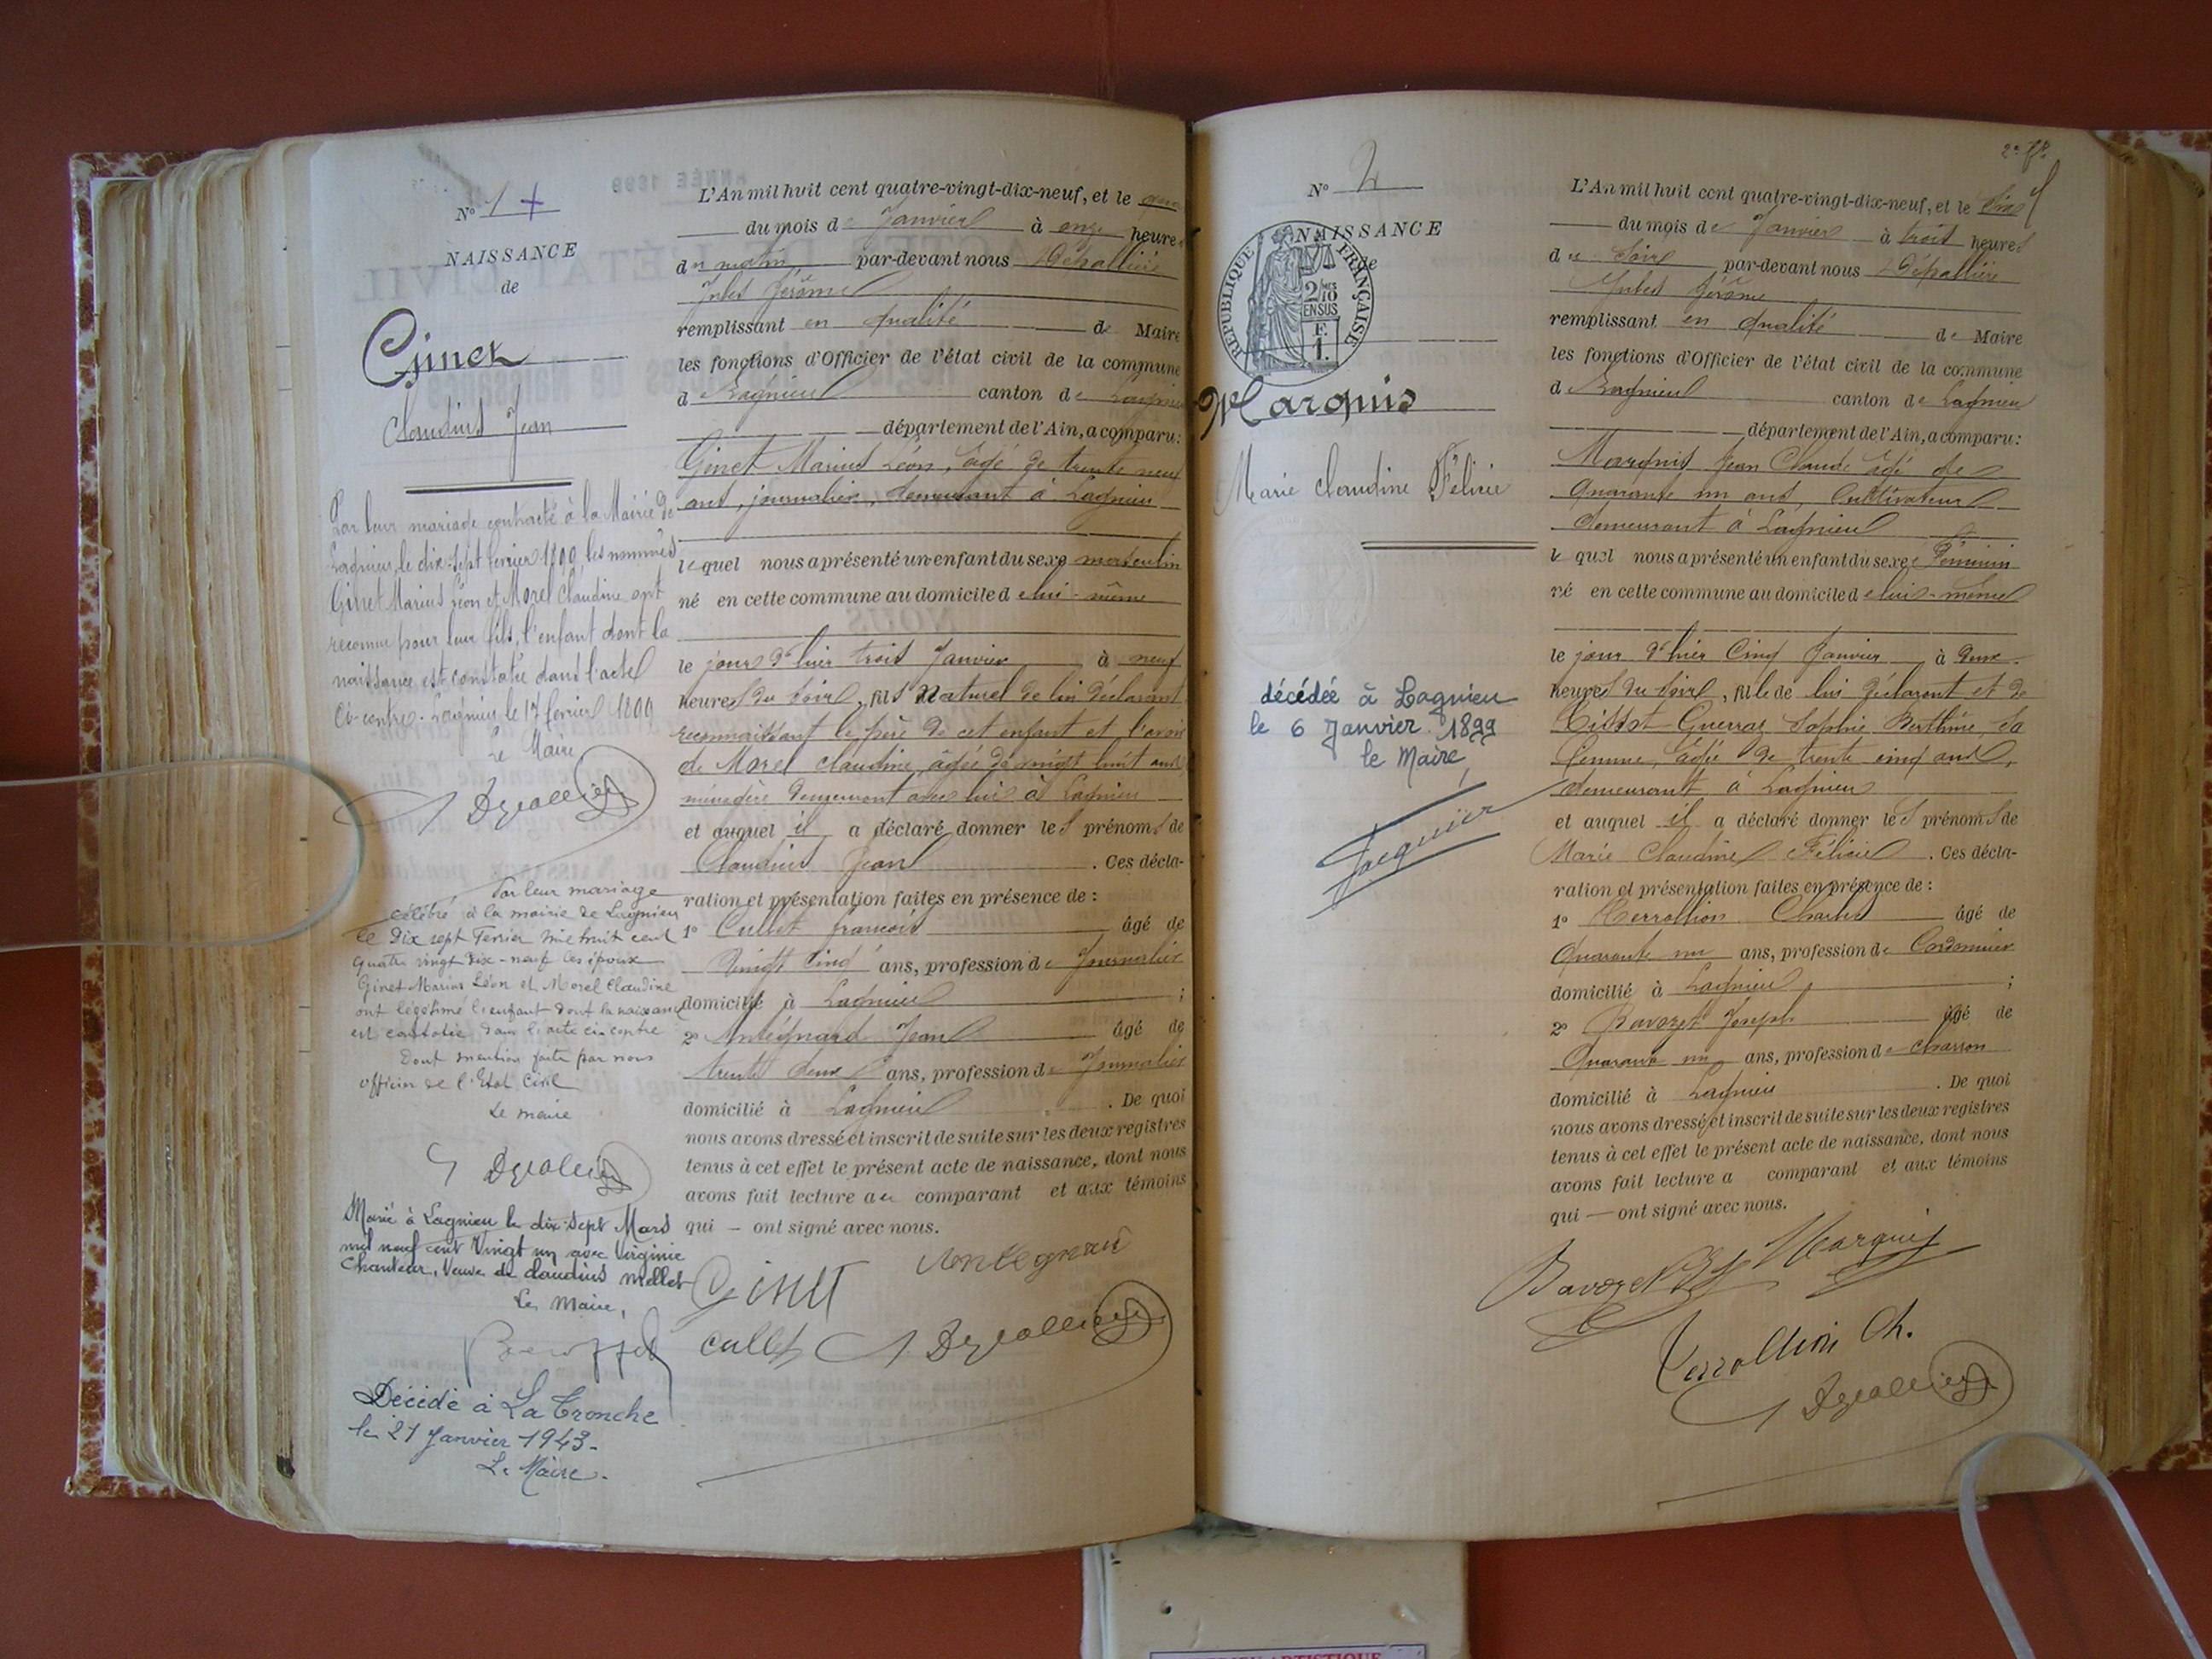 N° 1 +
NAISSANCE
de
Ginet
Claudius Jean
Par leur mariage contracté à la Mairie de
Lagnieu, le dix-sept fevrier 1899, les nommés
Ginet Marius Léon et Morel Claudine ont
reconnu pour leur fils, l'enfant dont la
naissance est constatée dans l'acte
Ci-contre. Lagnieu le 17 fevrier 1899
Le Maire
Par leur mariage
célébré à la mairie de Lagnieu
le Dix sept Fevrier mil huit cent
quatre vingt dix-neuf les époux
Ginet Marius Léon et Morel Claudine
ont légitimé l'enfant dont la naissance
est constatée dans l'acte ci-contre
Dont mention faite par nous
officier de l'Etat Civil
Le maire
Marié à Lagnieu le dix sept Mars
mil neuf cent Vingt un avec Virginie
Chanteur, Veuve de Claudius Mollet
Le Maire,
Décédé à La Tronche
le 21 Janvier 1943.
Le Maire.
L'An mil huit cent quatre-vingt-dix-neuf, et le
du mois de Janvier à onze heures
du matin par-devant nous Dépallière
Jules Jérôme
remplissant en qualité de Maire
les fonctions d'Officier de l'état civil de la commune
de Lagnieu canton de Lagnieu
département de l'Ain, a comparu:
Ginet Marius Léon, âgé de trente neuf
ans, journalier, demeurant à Lagnieu
lequel nous a présenté un enfant du sexe masculin
né en cette commune au domicile de lui-même
le jour d'hier trois Janvier à neuf
heures du soir, fils Naturel de lui déclarant
reconnaissant le père de cet enfant et l'avoir
de Morel Claudine, âgée de vingt huit ans
ménagère demeurant avec lui à Lagnieu
et auquel il a déclaré donner les prénoms de
Claudius Jean. Ces décla-
ration et présentation faites en présence de :
1° Cullet François âgé de
Vingt cinq ans, profession de Journalier
domicilié à Lagnieu ;
2° Antégnard Jean âgé de
trente deux ans, profession de Journalier
domicilié à Lagnieu. De quoi
nous avons dressé et inscrit de suite sur les deux registres
tenus à cet effet le présent acte de naissance, dont nous
avons fait lecture au comparant et aux témoins
qui — ont signé avec nous.
Ginet Antegnard
Cullet
N° 2
NAISSANCE
de
RÉPUBLIQUE FRANÇAISE
2/10 EN SUS
F.
1.
Marquis
Marie Claudine Félicie
décédée à Lagnieu
le 6 Janvier 1899
le Maire,
Jacquier
L'An mil huit cent quatre-vingt-dix-neuf, et le six
du mois de Janvier à trois heures
du Soir par-devant nous Dépallière
Jules Jérôme
remplissant en qualité de Maire
les fonctions d'Officier de l'état civil de la commune
de Lagnieu canton de Lagnieu
département de l'Ain, a comparu:
Marquis Jean Claude âgé de
Quarante un ans, Cultivateur
demeurant à Lagnieu
lequel nous a présenté un enfant du sexe Féminin
né en cette commune au domicile de lui-même
le jour d'hier Cinq Janvier à deux
heures du soir, fille de lui déclarant et de
Tissot-Guerraz Sophie Berthine, Sa
femme, âgée de trente cinq ans,
demeurant à Lagnieu
et auquel il a déclaré donner les prénoms de
Marie Claudine Félicie. Ces décla-
ration et présentation faites en présence de :
1° Perrollion Charles âgé de
Quarante un ans, profession de Cordonnier
domicilié à Lagnieu ;
2° Bavozet Joseph âgé de
Quarante un ans, profession de Charron
domicilié à Lagnieu. De quoi
nous avons dressé et inscrit de suite sur les deux registres
tenus à cet effet le présent acte de naissance, dont nous
avons fait lecture a comparant et aux témoins
qui — ont signé avec nous.
Bavozet Marquis
Perrollion Ch.